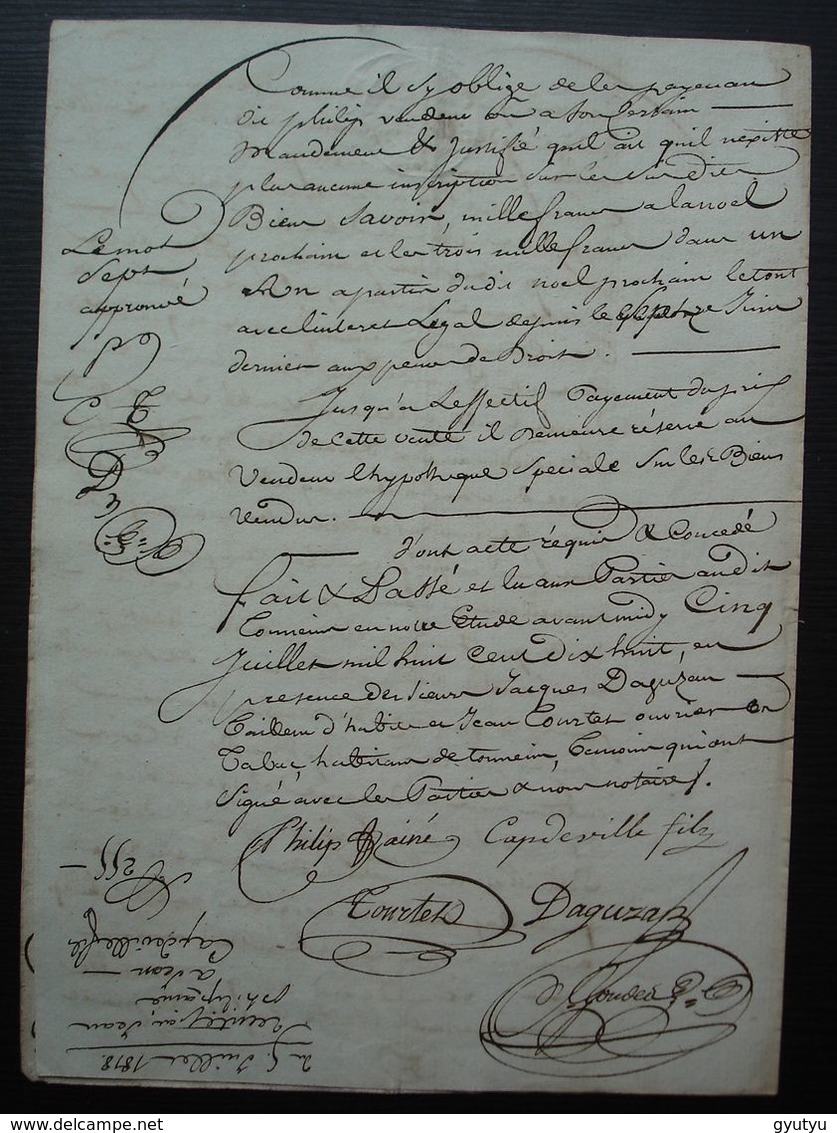 Comme il s'y oblige de les payer au
dit philip vendeur ou a son certain
mandement & justifié quil ait quil nexiste
plus aucune inscription sur les susdits
Biens Savoir, mille francs a la noel
prochain et les trois mille francs dans un
An a partir dudit noel prochain le tout
avec linteret Legal depuis le Juin
dernier aux peines de Droit.
Jusqu'a Leffectif Payement du prix
de cette vente il demeure réservé au
Vendeur lhypotheque speciale sur les Biens
vendus.
d'ont acte réquis & Concedé
fait & Passé et lu aux Parties audit
Tonneins en notre Etude avant midy Cinq
Juillet mil huit cent dix huit, en
presence des sieurs Jacques Daguzan
Tailleur d'habits et Jean Tourtes ouvrier en
Tabac, habitans de tonneins, temoins qui ont
Signé avec les Parties & nous notaires.
Philip ainé Capdeville fils
Tourtes Daguzan
Le mot
Sept
approuvé
No 255
du 5 Juillet 1818.
Jean
philip ainé
a Jean
Capdeville fils
gyutyu